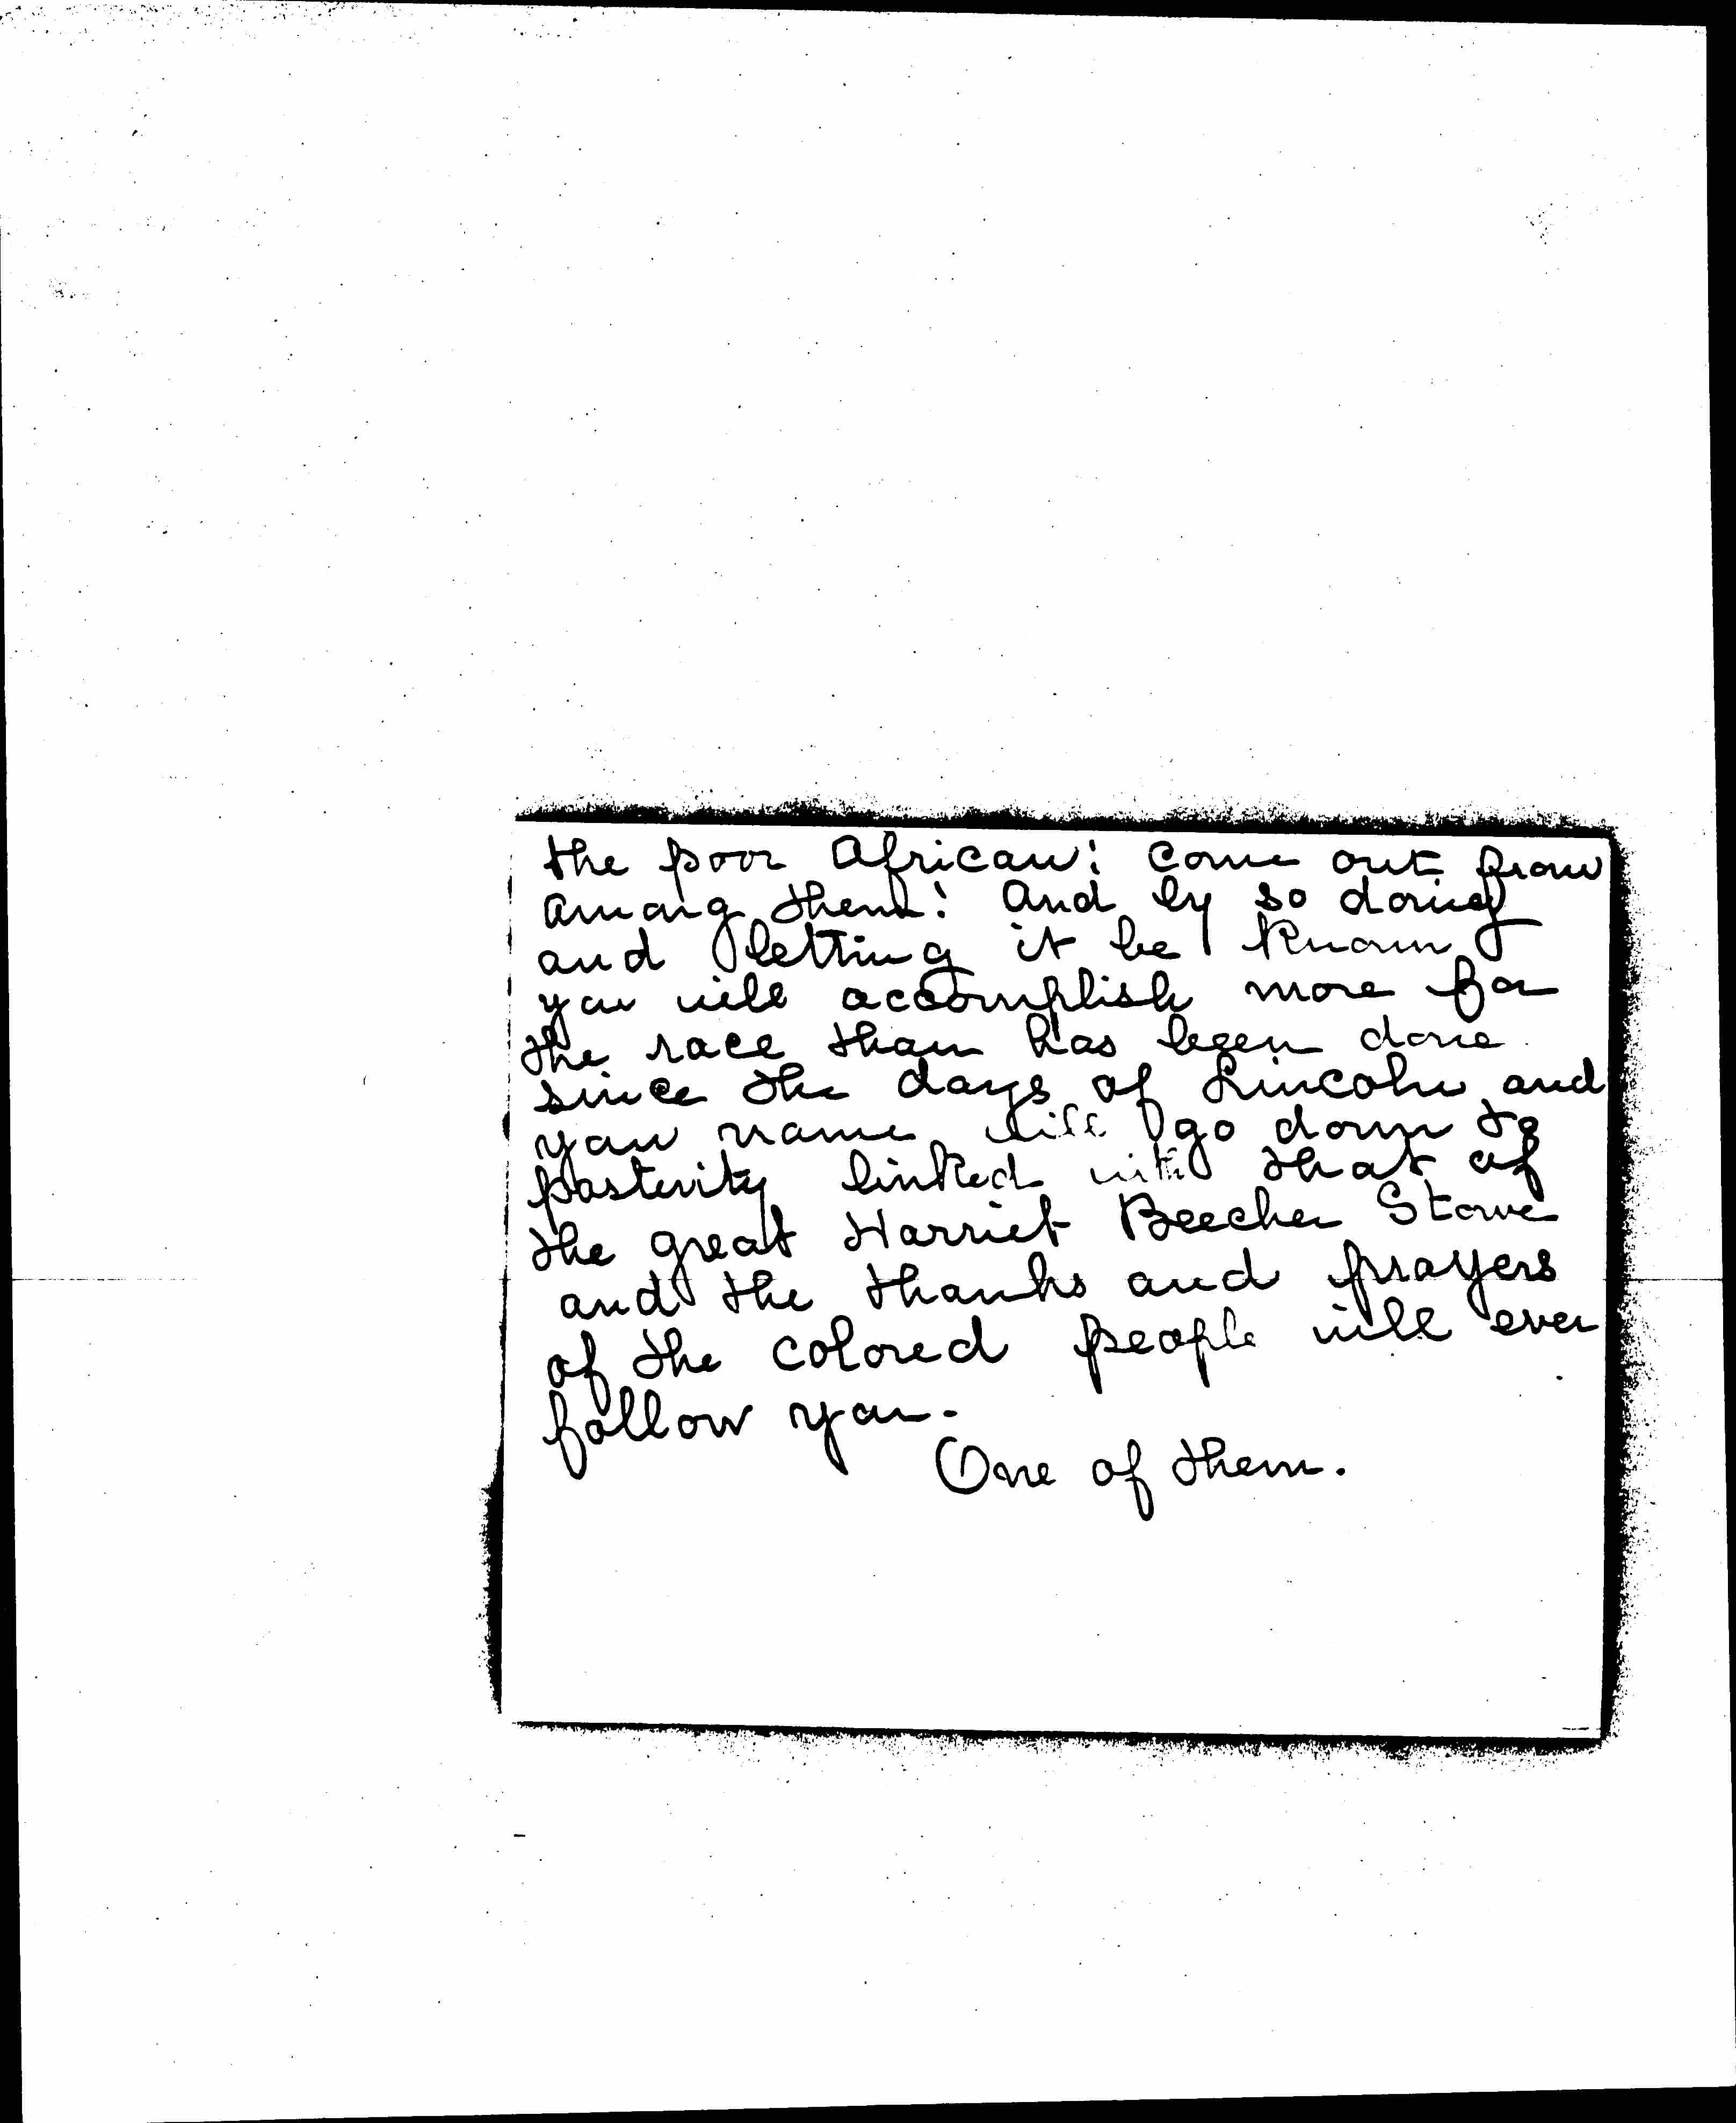 the poor African! Come out from
among them! And by so doing
and letting it be known
you will accomplish more for
the race than has been done
since the days of Lincoln and
your name will go down to
posterity linked with that of
the great Harriet Beecher Stowe
and the thanks and prayers
of the colored people will ever
follow you.
One of them.